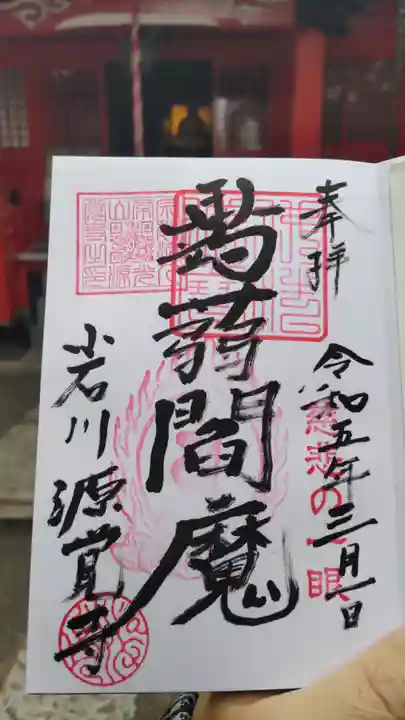 奉拝
令和五年三月一日
慈悲の一眼
蒟蒻閻魔
小石川源覚寺